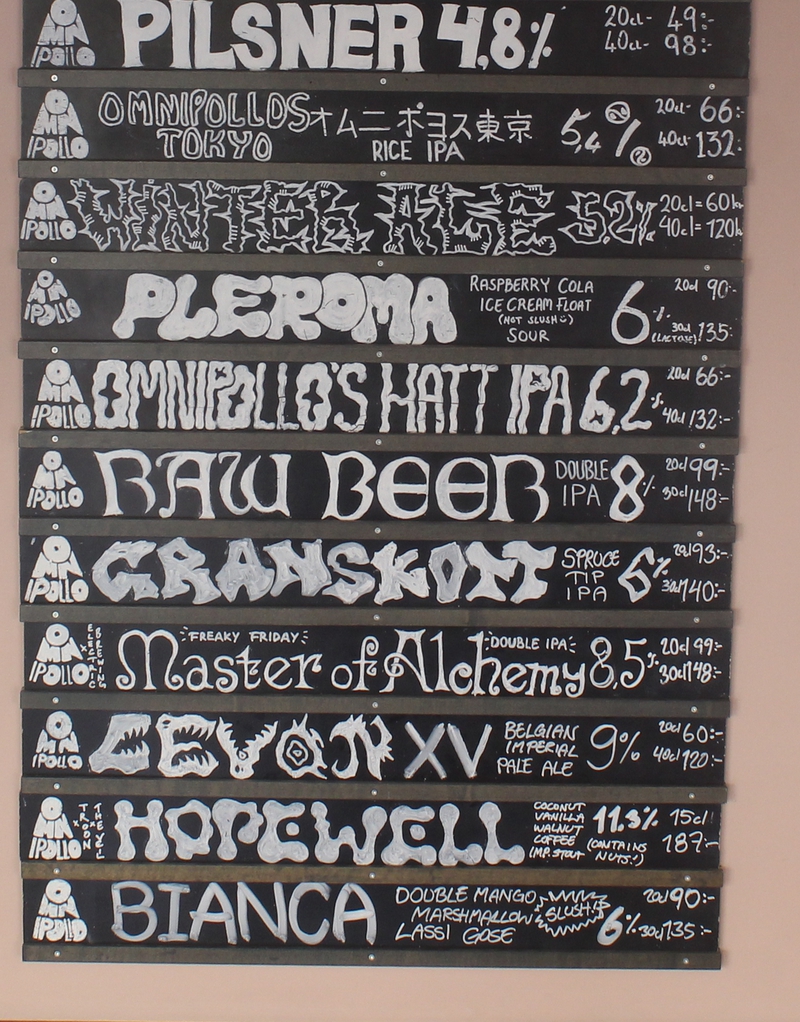 OMNIPOLLO PILSNER 4,8% 20cl- 49:-
40cl- 98:-
OMNIPOLLO OMNIPOLLOS オムニポヨス東京 5,4% 20cl- 66:-
TOKYO RICE IPA 40cl- 132:-
OMNIPOLLO WINTER ALE 5,2% 20cl = 60kr
40cl = 120kr
OMNIPOLLO PLEROMA RASPBERRY COLA 6% 20cl 90:-
ICE CREAM FLOAT
(NOT SLUSH☺)
SOUR (LACTOSE) 30cl 135:-
OMNIPOLLO OMNIPOLLO'S HATT IPA 6,2% 20cl 66:-
40cl 132:-
OMNIPOLLO RAW BEER DOUBLE 8% 20cl 99:-
IPA 30cl 148:-
OMNIPOLLO GRANSKOTT SPRUCE 6% 20cl 93:-
TIP
IPA 30cl 140:-
OMNIPOLLO x ELECTRIC BREWING FREAKY FRIDAY DOUBLE IPA
Master of Alchemy 8,5% 20cl 99:-
30cl 148:-
OMNIPOLLO LEVON XV BELGIAN 9% 20cl 60:-
IMPERIAL
PALE ALE 40cl 120:-
OMNIPOLLO x TROON x THE VEIL HOPEWELL COCONUT
VANILLA 11.3% 15cl
WALNUT
COFFEE (CONTAINS 187:-
IMP. STOUT NUTS!)
OMNIPOLLO BIANCA DOUBLE MANGO 20cl 90:-
MARSHMALLOW SLUSH!
LASSI GOSE 6% 30cl 135:-